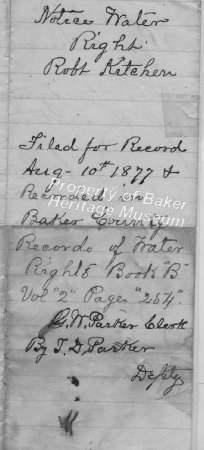 Notice Water
Right
Robt Kitchen
Filed for Record
Aug - 10th 1877 &
Recorded in
Baker County
Records of Water
Rights Book B
Vol "2" Pages "254"
G. W. Parker Clerk
By T. D. Parker
Depty
Property of Baker
Heritage Museum